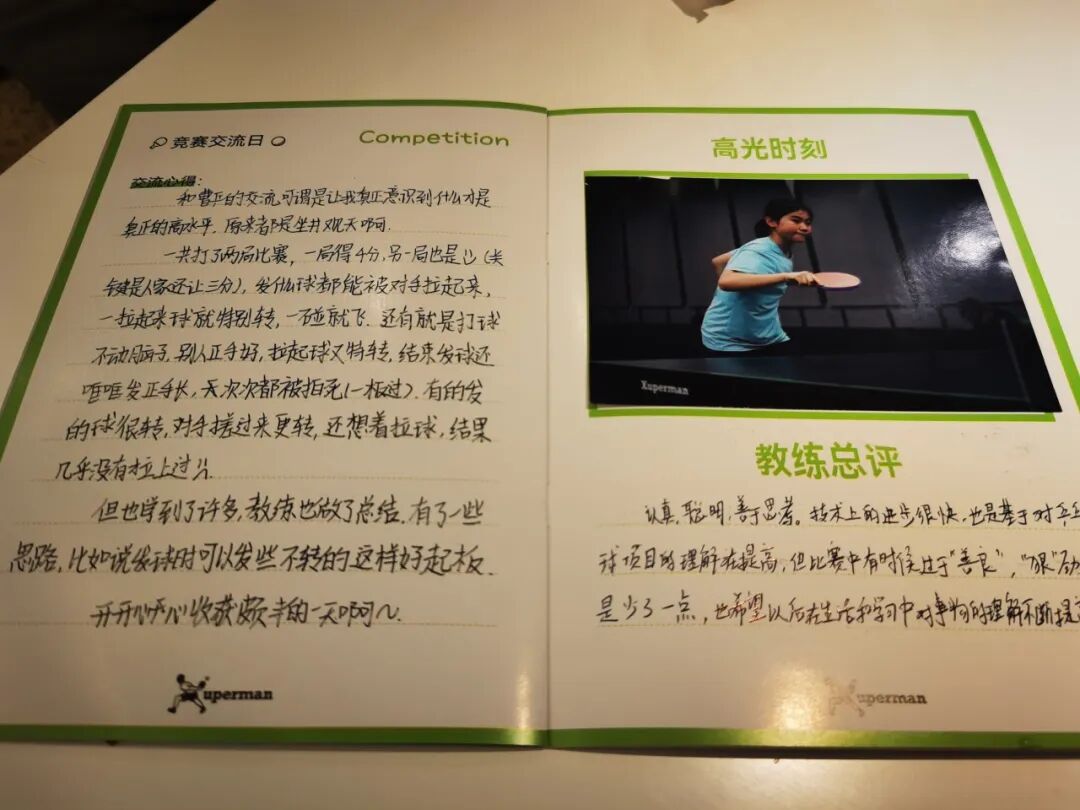 竞赛交流日
Competition
交流心得:
和曹平的交流,可谓是让我真正意识到什么才是
真正的高水平.原来都是坐井观天啊.
一共打了两局比赛,一局得4分,另一局也是(关
键是人家还让三分),发什么球都能被对手拉起来,
一拉起来球就特别转,一碰就飞.还有就是打球
不动脑子,别人正手好,拉起球又特转,结果发球还
咣咣发正手长,天次次都被拍死(一板过).有的发
的球很转,对手搓过来更转,还想着拉球,结果
几乎没有拉上过.
但也学到了许多,教练也做了总结.有了一些
思路,比如说发球时可以发些不转的.这样好起板.
开开心心收获颇丰的一天啊~
uperman
高光时刻
Xuperman
教练总评
认真,聪明,善于思考。技术上的进步很快,也是基于对乒乓
球项目的理解在提高,但比赛中有时候过于"善良","狠"劲
是少了一点,也希望以后在生活和学习中对事物的理解不断提高
uperman